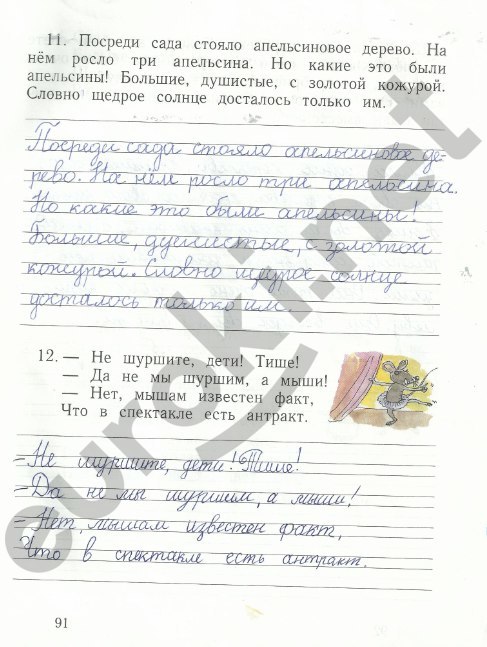 11. Посреди сада стояло апельсиновое дерево. На
нём росло три апельсина. Но какие это были
апельсины! Большие, душистые, с золотой кожурой.
Словно щедрое солнце досталось только им.
Посреди сада стояло апельсиновое де-
рево. На нём росло три апельсина.
Но какие это были апельсины!
Большие, душистые, с золотой
кожурой. Словно щедрое солнце
досталось только им.
12. — Не шуршите, дети! Тише!
— Да не мы шуршим, а мыши!
— Нет, мышам известен факт,
Что в спектакле есть антракт.
- Не шуршите, дети! Тише!
- Да не мы шуршим, а мыши!
- Нет, мышам известен факт,
Что в спектакле есть антракт.
91
euroki.net